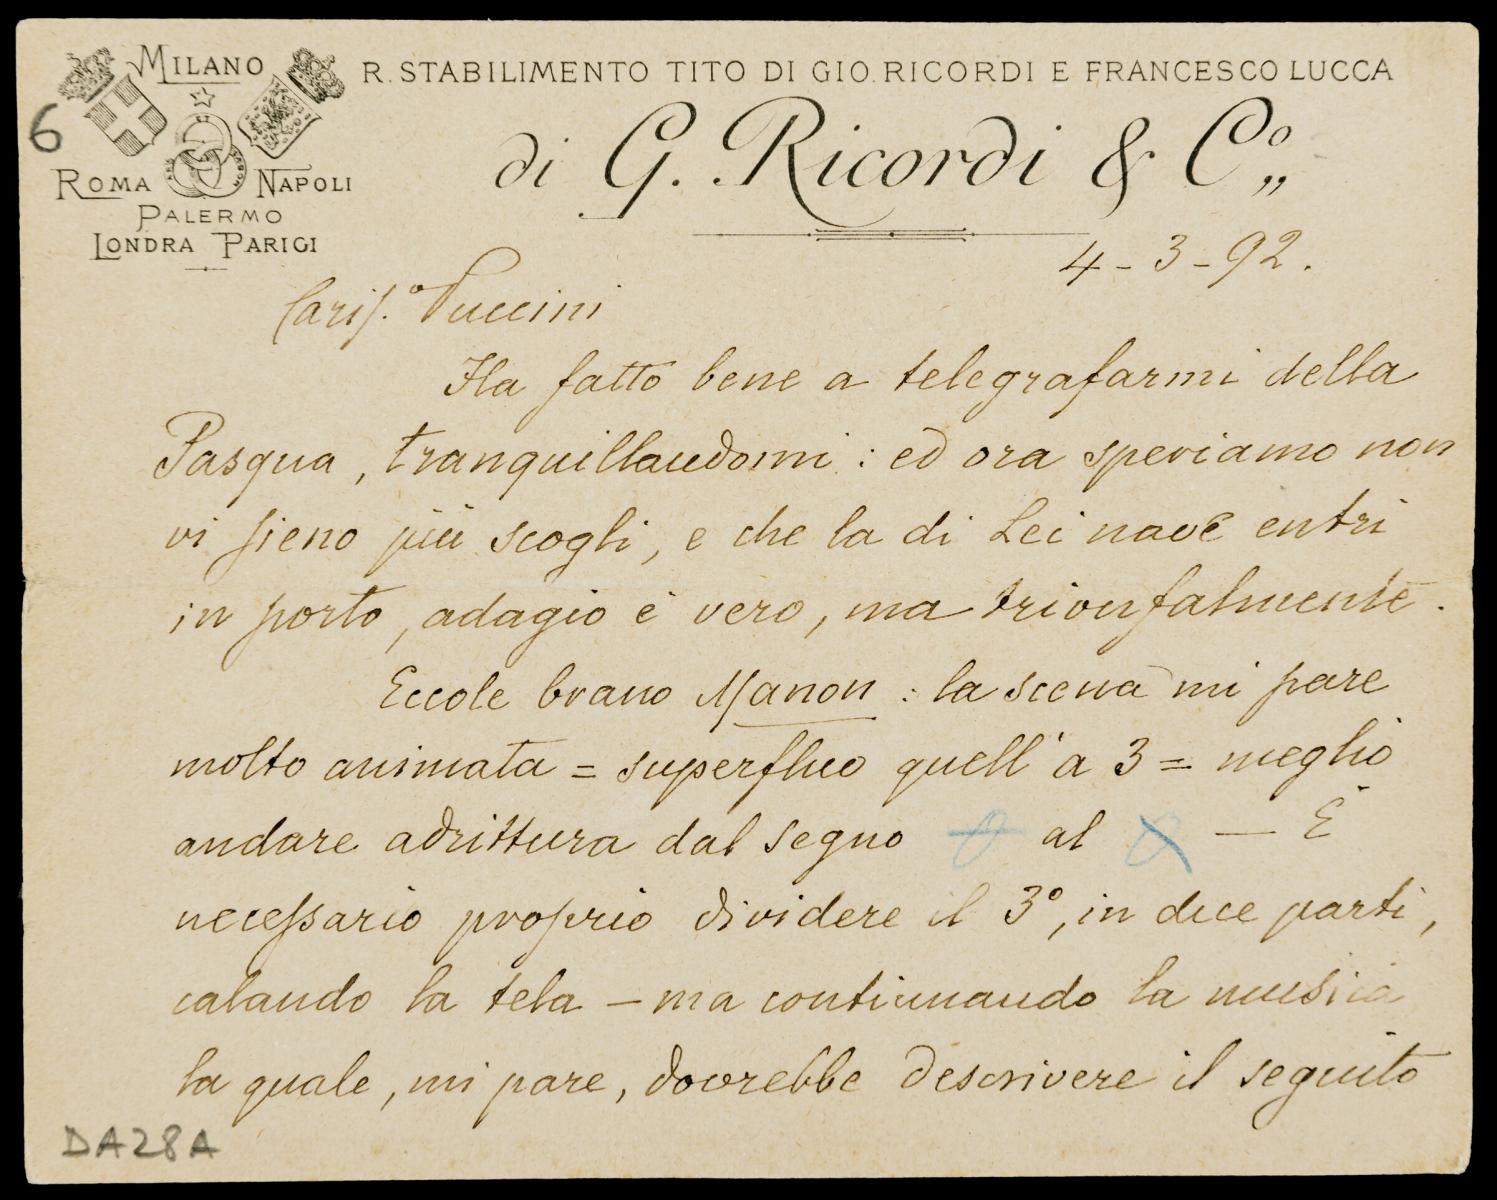 MILANO
ROMA NAPOLI
PALERMO
LONDRA PARIGI
R. STABILIMENTO TITO DI GIO. RICORDI E FRANCESCO LUCCA
di G. Ricordi & Cº.
6
4-3-92.
Carisº. Puccini
Ha fatto bene a telegrafarmi della
Pasqua, tranquillandomi: ed ora speriamo non
vi sieno più scogli, e che la di Lei nave entri
in porto, adagio è vero, ma trionfalmente.
Eccole brano Manon: la scena mi pare
molto animata = superfluo quell'a 3 = meglio
andare adrittura dal segno al — È
necessario proprio dividere il 3º, in due parti,
calando la tela – ma continuando la musica
la quale, mi pare, dovrebbe descrivere il seguito
DA28A